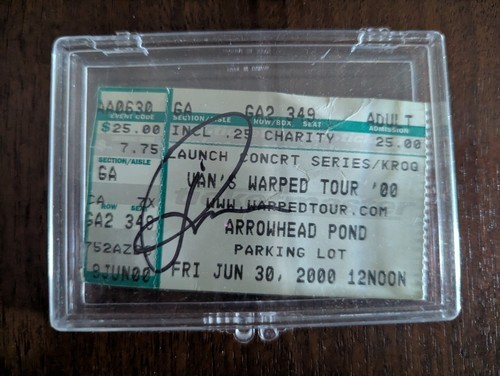 AA0630 GA GA2 349 ADULT
EVENT CODE SECTION/AISLE ROW/BOX SEAT ADMISSION
$25.00 INCL .25 CHARITY 25.00
7.75 LAUNCH CONCRT SERIES/KROQ
SECTION/AISLE
GA VAN'S WARPED TOUR '00
CA 7X WWW.WARPEDTOUR.COM
ROW SEAT
GA2 349 ARROWHEAD POND
752AZ PARKING LOT
8JUN00 FRI JUN 30, 2000 12NOON